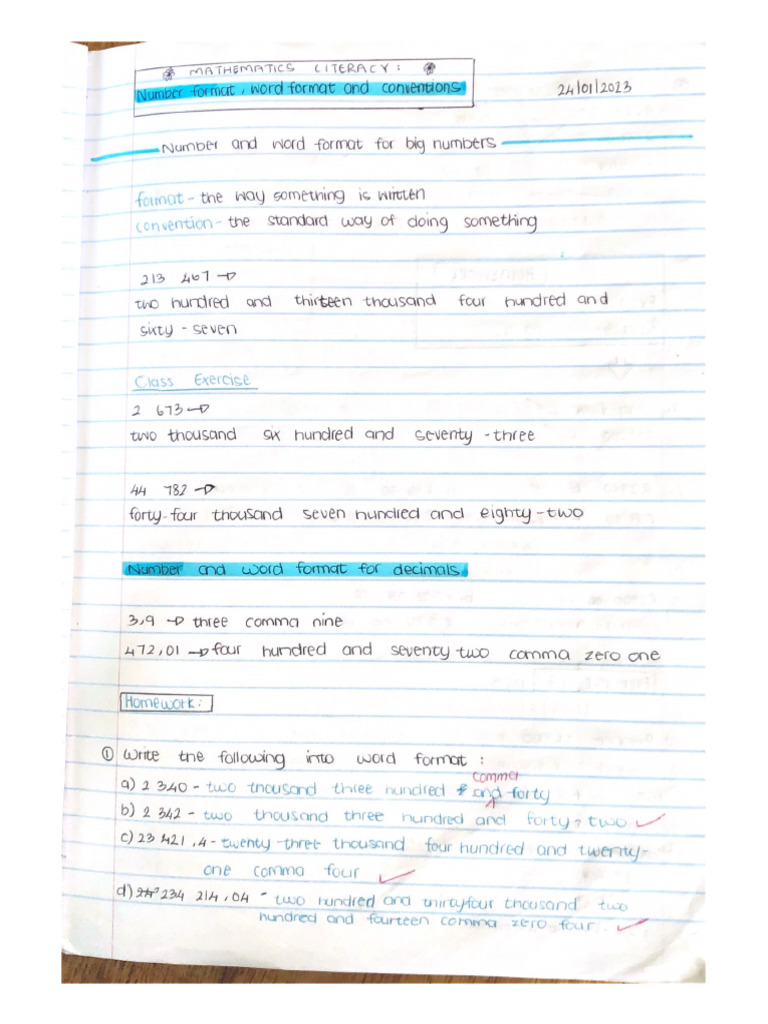 MATHEMATICS LITERACY:
Number format, word format and conventions 24/01/2023
Number and word format for big numbers
format - the way something is written
convention - the standard way of doing something
213 467 →
two hundred and thirteen thousand four hundred and
sixty - seven
Class Exercise
2 673 →
two thousand six hundred and seventy - three
44 782 →
forty-four thousand seven hundred and eighty-two
Number and word format for decimals
3,9 → three comma nine
472,01 → four hundred and seventy-two comma zero one
Homework:
① Write the following into word format :
comma
a) 2 340 - two thousand three hundred and forty
b) 2 342 - two thousand three hundred and forty-two ✓
c) 23 421,4 - twenty-three thousand four hundred and twenty-
one comma four ✓
d) 234 214,04 - two hundred and thirtyfour thousand two
hundred and fourteen comma zero four. ✓